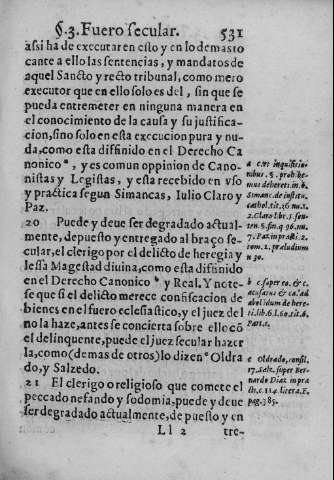 §.3. Fuero secular. 531
assi ha de executar en esto y en lo demas to
cante a ello las sentencias, y mandatos de
aquel Sancto y recto tribunal, como mero
executor que en ello solo es del, sin que se
pueda entremeter en ninguna manera en
el conocimiento de la causa y su justifica-
cion, sino solo en esta execucion pura y nu-
da, como esta diffinido en el Derecho Ca
nonico ª, y es comun oppinion de Cano-
nistas y Legistas, y esta recebido en vso
y practica segun Simancas, Iulio Claro y
Paz.
20 Puede y deue ser degradado actual-
mente, depuesto y entregado al braço se-
cular, el clerigo por el delicto de heregia y
lessa Magestad diuina, como esta diffinido
en el Derecho Canonico ᵇ y Real. Y note-
se que si el delicto merece confiscacion de
bienes en el fuero eclesiastico, y el juez del
no la haze, antes se concierta sobre ello cõ
el delinquente, puede el juez secular hazer
la, como (demas de otros) lo dizen ᶜ Oldra
do, y Salzedo.
21 El clerigo o religioso que comete el
peccado nefando y sodomia, puede y deue
ser degradado actualmente, depuesto y en
Ll 2 tre-
a c. vt inquisitio
nibus. §. prohibe
mus de heret. in. 6.
Simanc. de instit.
cathol. tit. 36. nu. 1.
2. Claro lib. 5. sen-
ten. §. fin. q. 96. nu.
7. Paz in praxi. 2.
tom. 2. præludium
n 30.
b c. super eo. & c.
accusatus & c. ad
abolendum de here
ti. lib. 6. l. 60. tit. 6.
Part. 1.
c Oldrado, consil.
17. Salz. super Ber-
nardo Diaz in pra
cti. c. 114. litera. E.
pag. 385.